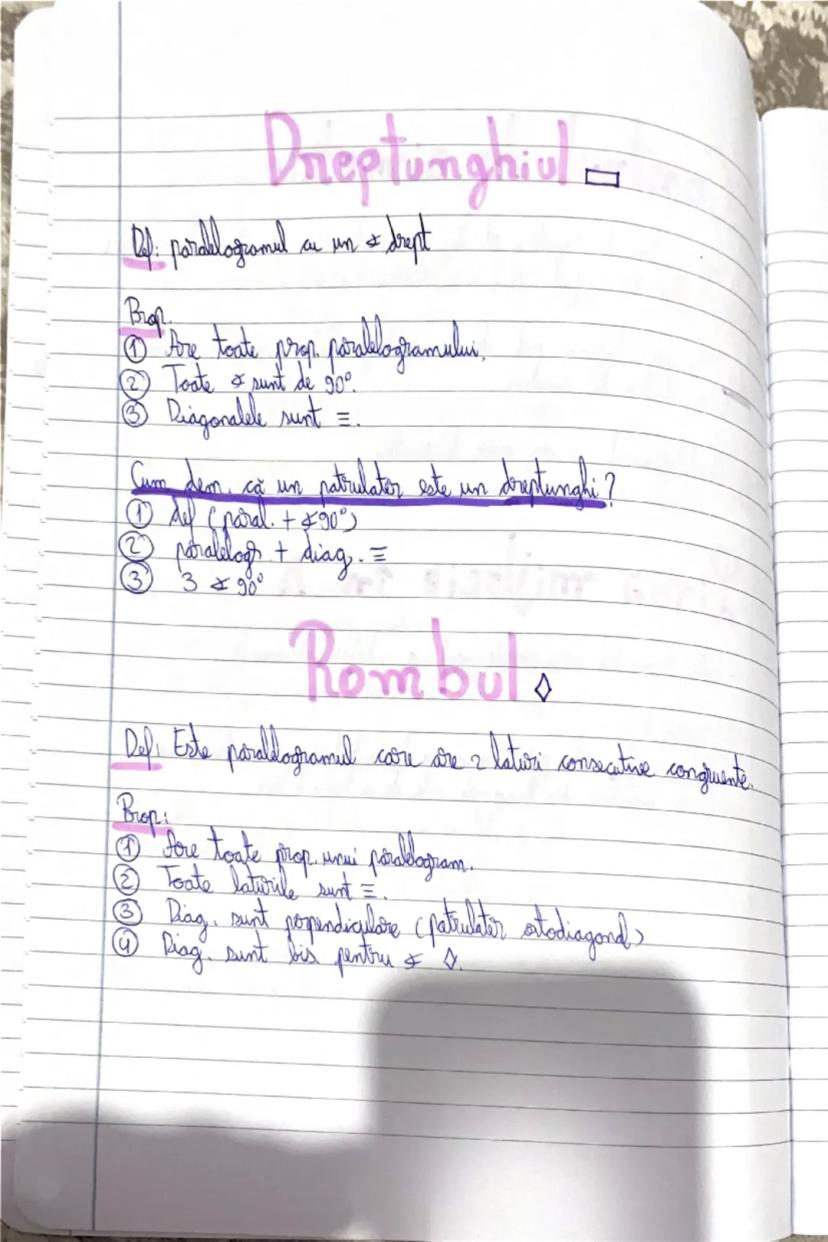 Dreptunghiul ▭
Def: paralelogramul cu un ∢ drept
Prop.
① Are toate prop. paralelogramului.
② Toate ∢ sunt de 90°.
③ Diagonalele sunt ≡.
Cum dem. că un patrulater este un dreptunghi?
① def (paral. + ∢90°)
② paralelogr + diag. ≡
③ 3 ∢ 90°
Rombul ◊
Def: Este paralelogramul care are 2 laturi consecutive congruente.
Prop:
① Are toate prop. unui paralelogram.
② Toate laturile sunt ≡.
③ Diag. sunt perpendiculare (patrulater ortodiagonal)
④ Diag. sunt bis pentru ∢ ◊.